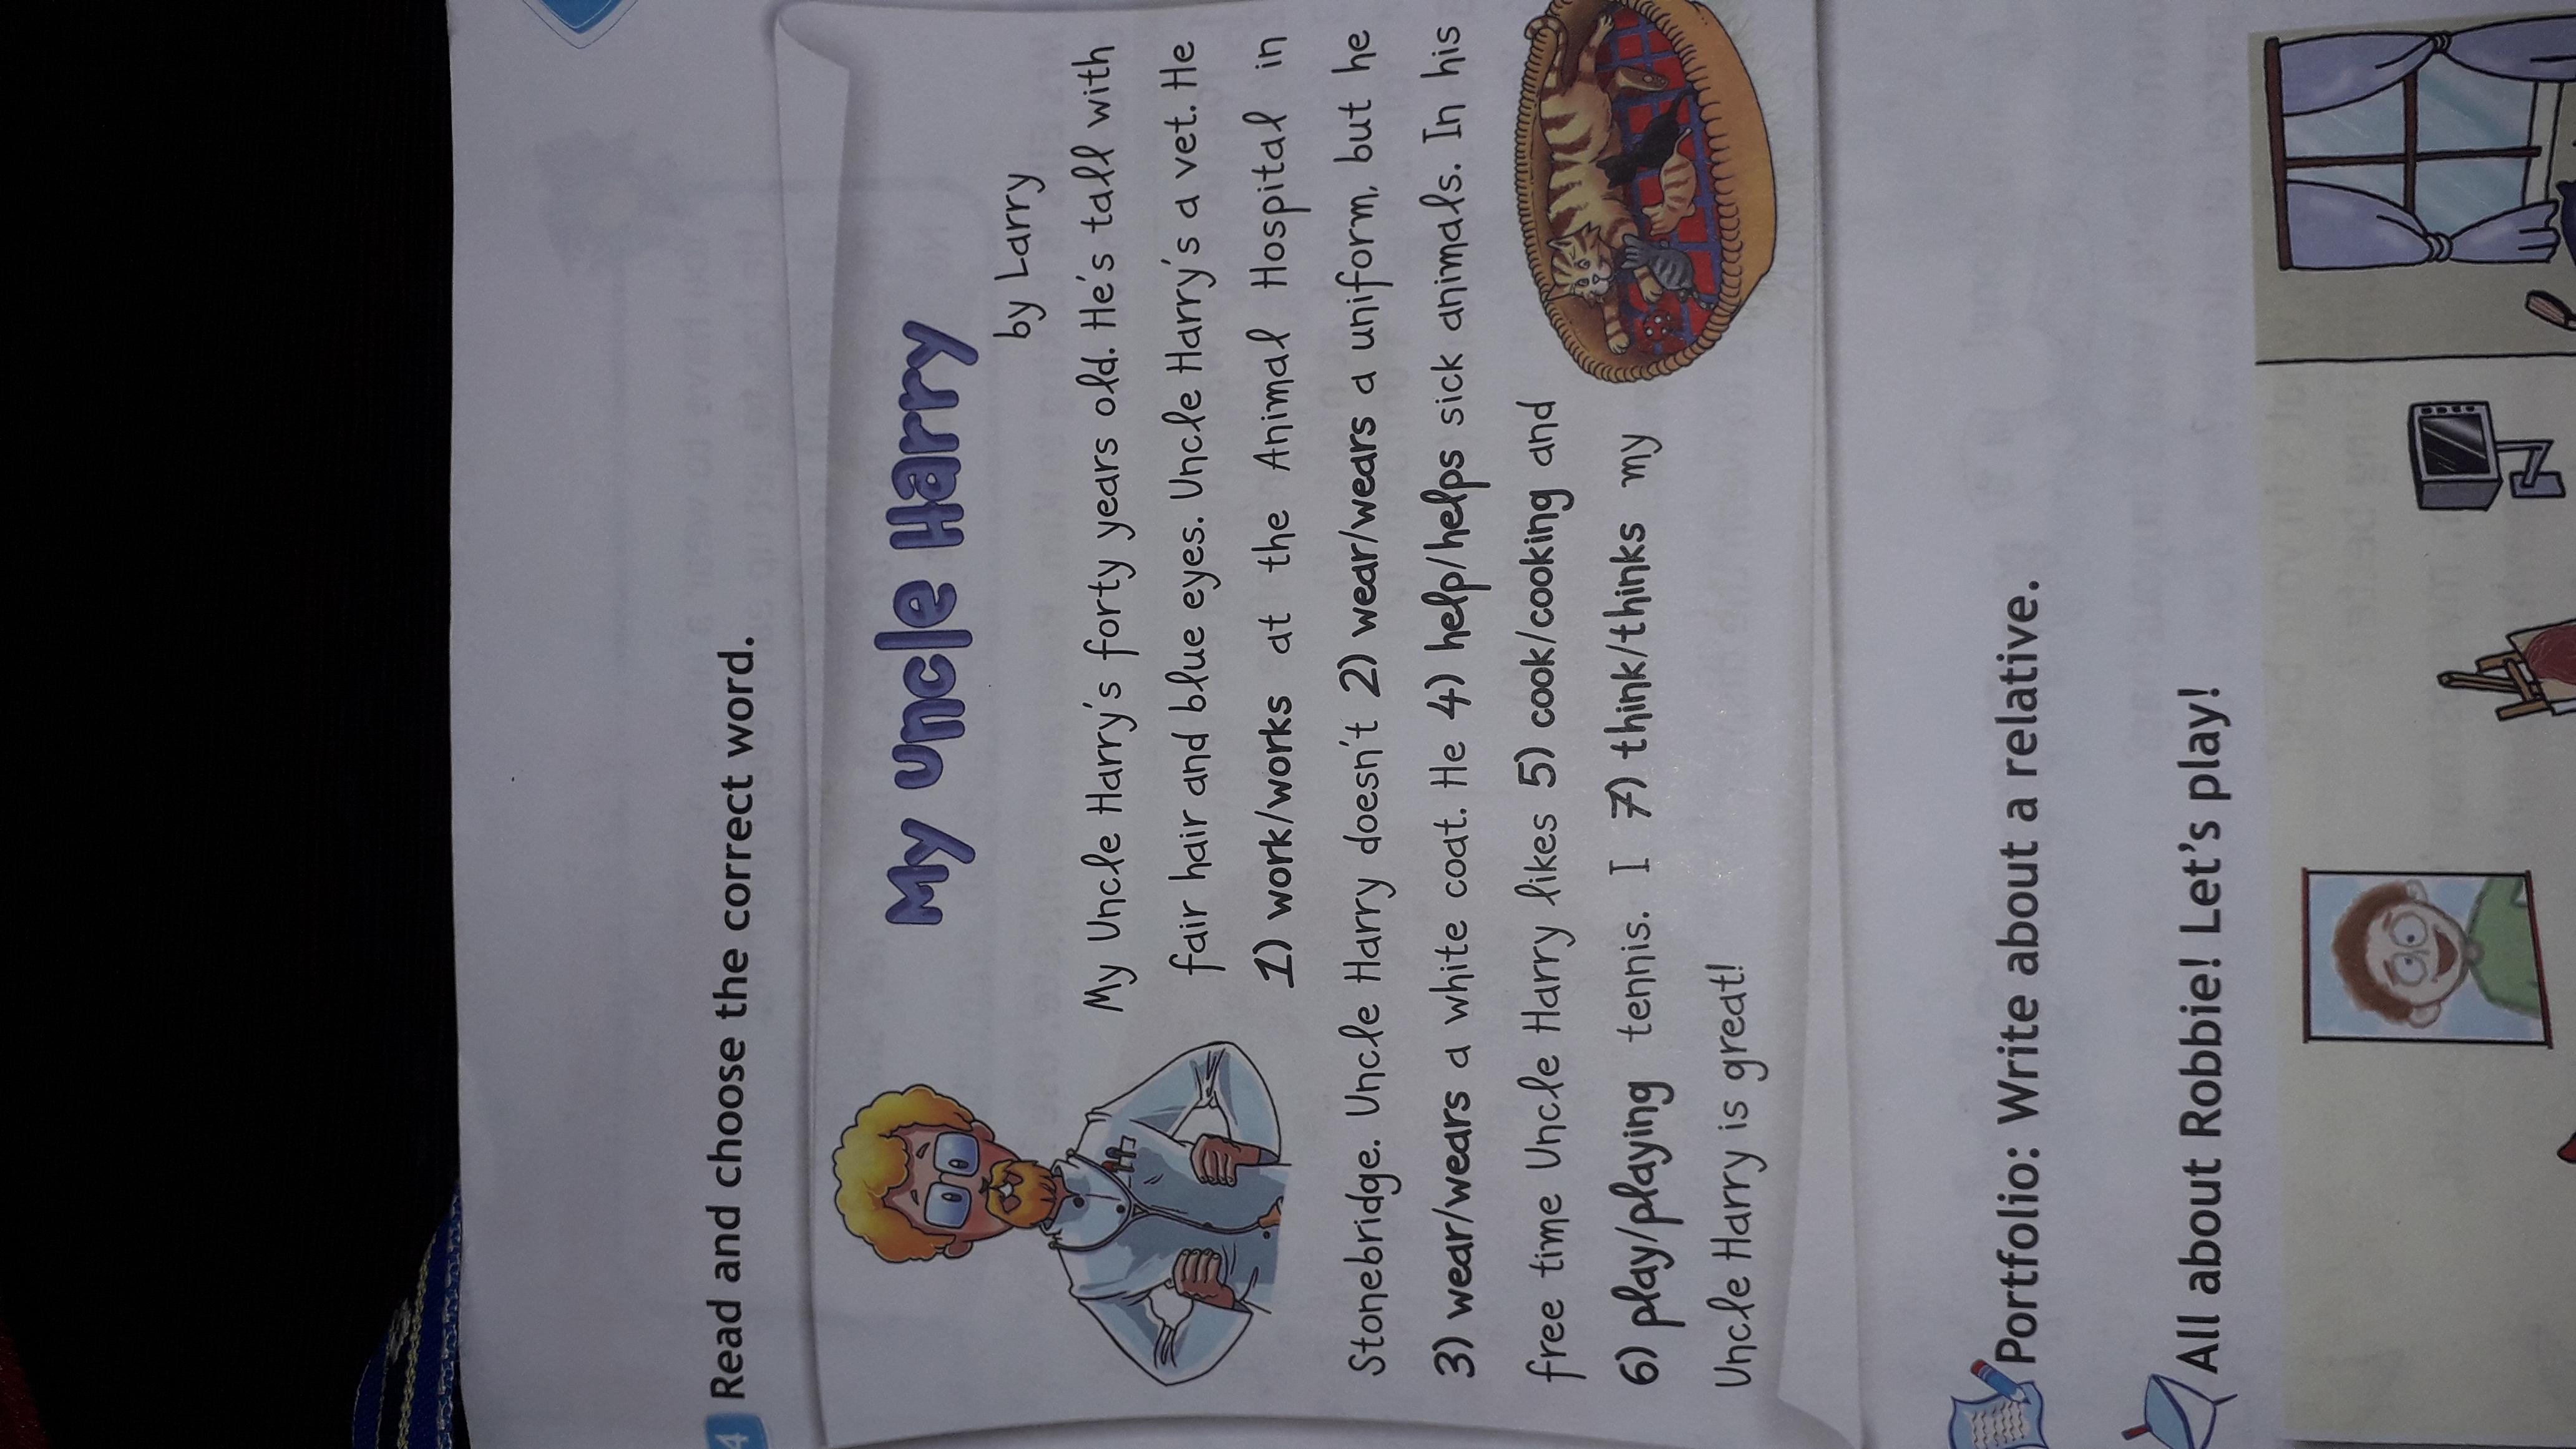 4 Read and choose the correct word.
My Uncle Harry
by Larry
My Uncle Harry's forty years old. He's tall with
fair hair and blue eyes. Uncle Harry's a vet. He
1) work/works at the Animal Hospital in
Stonebridge. Uncle Harry doesn't 2) wear/wears a uniform, but he
3) wear/wears a white coat. He 4) help/helps sick animals. In his
free time Uncle Harry likes 5) cook/cooking and
6) play/playing tennis. I 7) think/thinks my
Uncle Harry is great!
Portfolio: Write about a relative.
All about Robbie! Let's play!